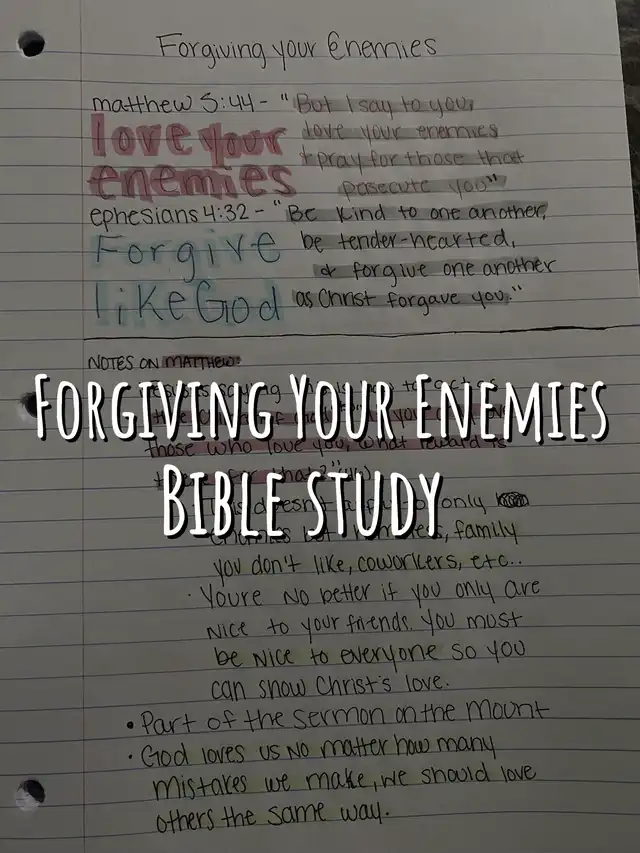 Forgiving your Enemies
matthew 5:44 - "But I say to you,
love your
love your enemies
enemies
+ pray for those that
pasecute you"
ephesians 4:32 - "Be kind to one another,
Forgive
be tender-hearted,
& forgive one another
like God
as Christ forgave you."
NOTES ON MATTHEW:
Forgiving Your Enemies
those who love you, what reward is
Bible study
only
family
you don't like, coworkers, etc..
· Youre no better if you only are
nice to your friends. You must
be nice to everyone so you
can show Christ's love.
• Part of the Sermon on the Mount
· God loves us no matter how many
mistakes we make, we should love
others the same way.